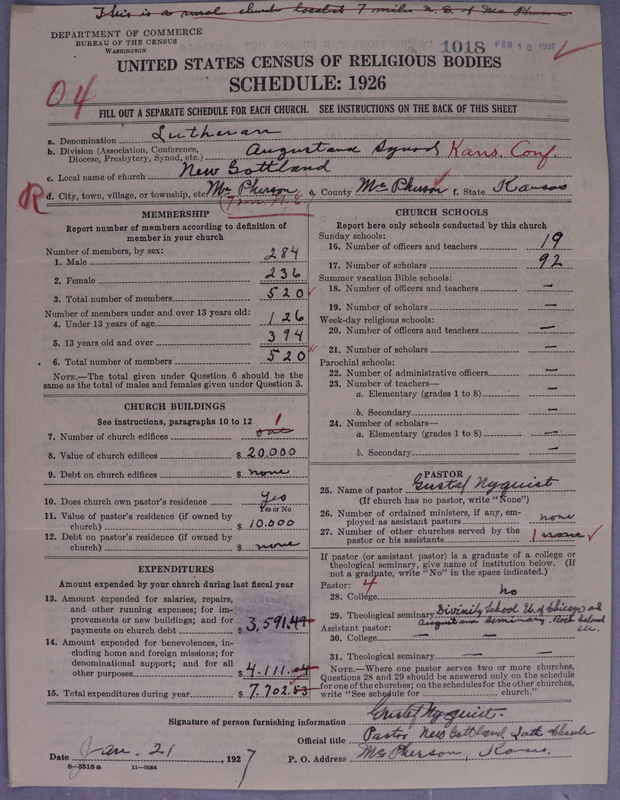 This is a rural church located 7 miles N.E. of Mc Pherson
DEPARTMENT OF COMMERCE
BUREAU OF THE CENSUS
WASHINGTON
1018
FEB 10 1927
UNITED STATES CENSUS OF RELIGIOUS BODIES
SCHEDULE: 1926
04
FILL OUT A SEPARATE SCHEDULE FOR EACH CHURCH. SEE INSTRUCTIONS ON THE BACK OF THIS SHEET
a. Denomination Lutheran
b. Division (Association, Conference, Diocese, Presbytery, Synod, etc.) Augustana Synod Kans. Conf.
c. Local name of church New Gottland
R d. City, town, village, or township, etc. Mc Pherson e. County Mc Pherson f. State Kansas
7 mi N.E.
MEMBERSHIP
Report number of members according to definition of
member in your church
Number of members, by sex:
1. Male 284
2. Female 236
3. Total number of members 520
Number of members under and over 13 years old:
4. Under 13 years of age 126
5. 13 years old and over 394
6. Total number of members 520
NOTE.—The total given under Question 6 should be
same as the total of males and females given under Question 3.
CHURCH BUILDINGS
See instructions, paragraphs 10 to 12
7. Number of church edifices one 1
8. Value of church edifices $ 20.000
9. Debt on church edifices $ none
10. Does church own pastor's residence Yes
Yes or No
11. Value of pastor's residence (if owned by
church) $ 10.000
12. Debt on pastor's residence (if owned by
church) $ none
EXPENDITURES
Amount expended by your church during last fiscal year
13. Amount expended for salaries, repairs,
and other running expenses; for im-
provements or new buildings; and for
payments on church debt $ 3,591.49
14. Amount expended for benevolences, in-
cluding home and foreign missions; for
denominational support; and for all
other purposes $ 4.111.04
15. Total expenditures during year $ 7.702.53
CHURCH SCHOOLS
Report here only schools conducted by this church
Sunday schools:
16. Number of officers and teachers 19
17. Number of scholars 92
Summer vacation Bible schools:
18. Number of officers and teachers —
19. Number of scholars —
Week-day religious schools:
20. Number of officers and teachers —
21. Number of scholars —
Parochial schools:
22. Number of administrative officers —
23. Number of teachers—
a. Elementary (grades 1 to 8) —
b. Secondary —
24. Number of scholars—
a. Elementary (grades 1 to 8) —
b. Secondary —
PASTOR
25. Name of pastor Gustaf Nyquist
(If church has no pastor, write "None")
26. Number of ordained ministers, if any, em-
ployed as assistant pastors none
27. Number of other churches served by the
pastor or his assistants 1 none
If pastor (or assistant pastor) is a graduate of a college or
theological seminary, give name of institution below. (If
not a graduate, write "No" in the space indicated.)
Pastor: 4
28. College No
29. Theological seminary Divinity School U. of Chicago and
Augustana Seminary, Rock Island
Ill.
Assistant pastor:
30. College — —
31. Theological seminary — —
NOTE.—Where one pastor serves two or more churches,
Questions 28 and 29 should be answered only on the schedule
for one of the churches; on the schedules for the other churches,
write "See schedule for church."
Signature of person furnishing information Gustaf Nyquist.
Official title Pastor New Gottland Luth Church
Date Jan. 21, 1927 P. O. Address McPherson, Kansas.
8—5518 a 11—9064